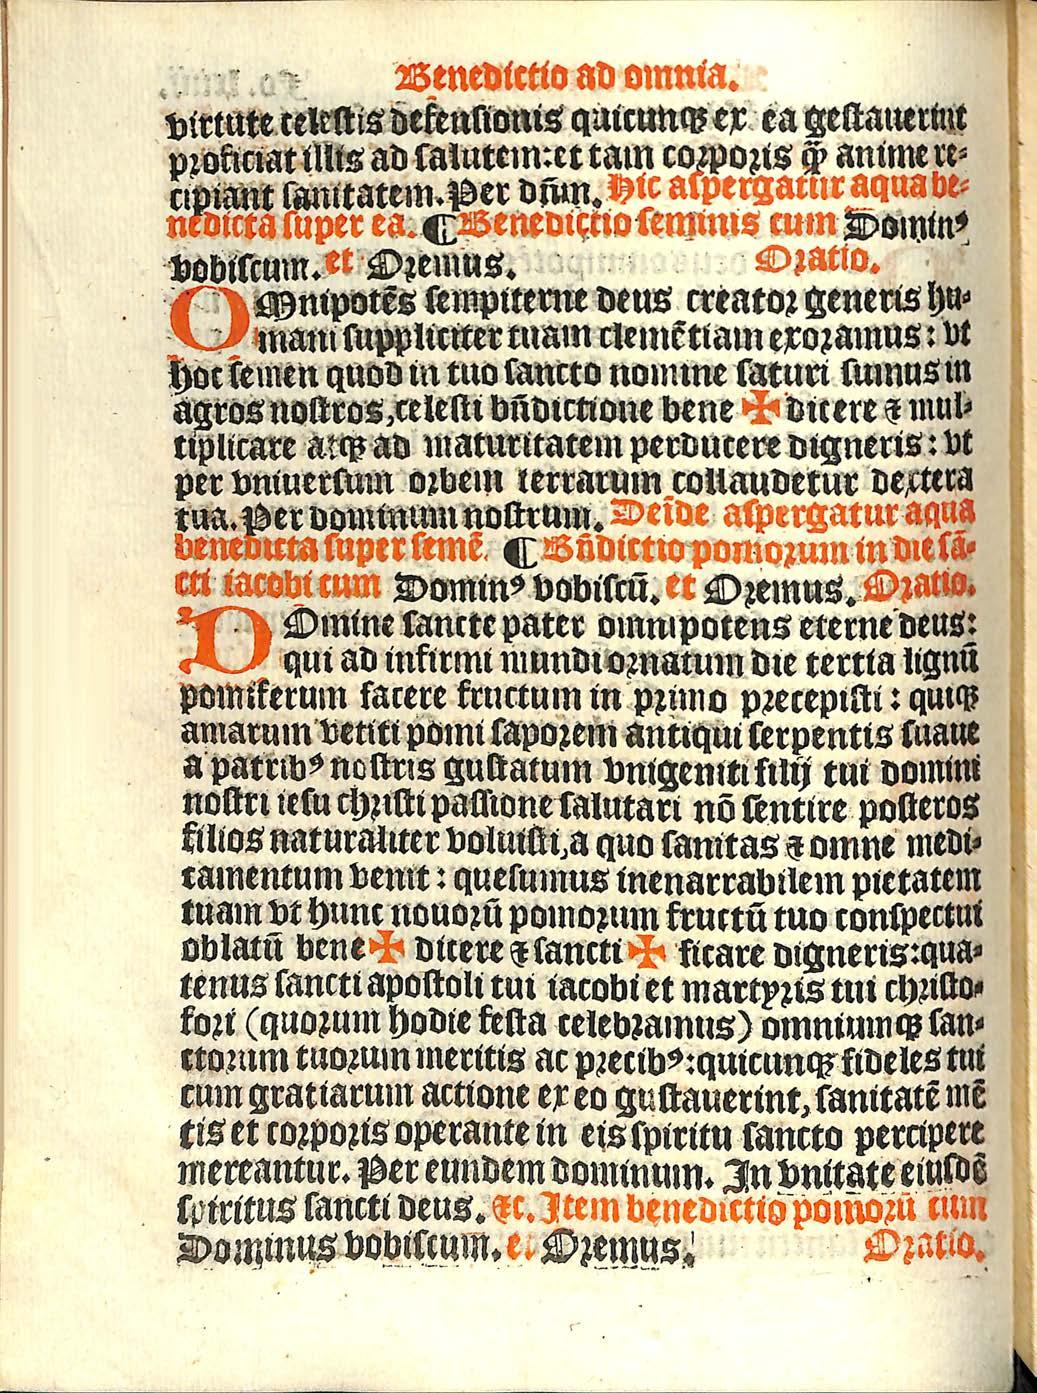 Benedictio ad omnia.
virtute celestis defensionis quicunqꝫ ex ea gestauerint
proficiat illis ad salutem: et tam corporis qᷓꝫ anime re-
cipiant sanitatem. Per dn̄m. Hic aspergatur aqua be-
nedicta super ea. ¶ Benedictio seminis cum Dominꝰ
vobiscum. et Oremus. Oratio.
OMnipotēs sempiterne deus creator generis hu-
mani suppliciter tuam clemētiam exoramus: vt
hoc semen quod in tuo sancto nomine saturi sumus in
agros nostros, celesti bn̄dictione bene ✠ dicere ⁊ mul-
tiplicare atqꝫ ad maturitatem perducere digneris: vt
per vniuersum orbem terrarum collaudetur dextera
tua. Per dominum nostrum. Deīde aspergatur aqua
benedicta super semē. ¶ Bn̄dictio pomorum in die sā-
cti iacobi cum Dominꝰ vobiscū. et Oremus. Oratio.
DOmine sancte pater omnipotens eterne deus:
qui ad infirmi mundi ornatum die tertia lignū
pomiferum facere fructum in primo precepisti: quiqꝫ
amarum vetiti pomi saporem antiqui serpentis suaue
a patribꝰ nostris gustatum vnigeniti filij tui domini
nostri iesu christi passione salutari nō sentire posteros
filios naturaliter voluisti, a quo sanitas ⁊ omne medi-
camentum venit: quesumus inenarrabilem pietatem
tuam vt hunc nouorū pomorum fructū tuo conspectui
oblatū bene ✠ dicere ⁊ sancti ✠ ficare digneris: qua-
tenus sancti apostoli tui iacobi et martyris tui christo-
fori (quorum hodie festa celebramus) omniumqꝫ san-
ctorum tuorum meritis ac precibꝰ: quicunqꝫ fideles tui
cum gratiarum actione ex eo gustauerint, sanitatē mē
tis et corporis operante in eis spiritu sancto percipere
mereantur. Per eundem dominum. In vnitate eiusdē
spiritus sancti deus. ⁊c. Item benedictio pomorū cum
Dominus vobiscum. et Oremus. Oratio.